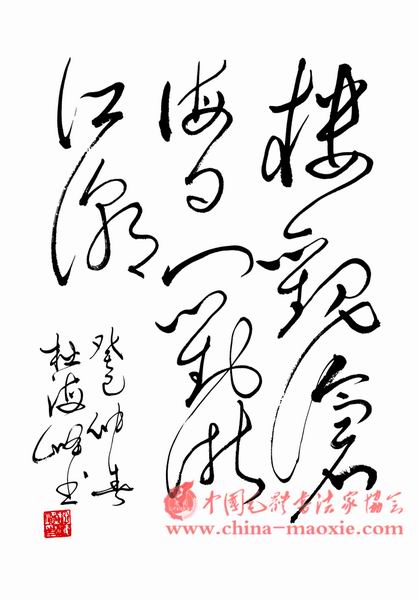 楼观沧
海日门对浙
江潮
癸巳仲春
杜海峰书
中国毛体书法家协会
www.china-maoxie.com